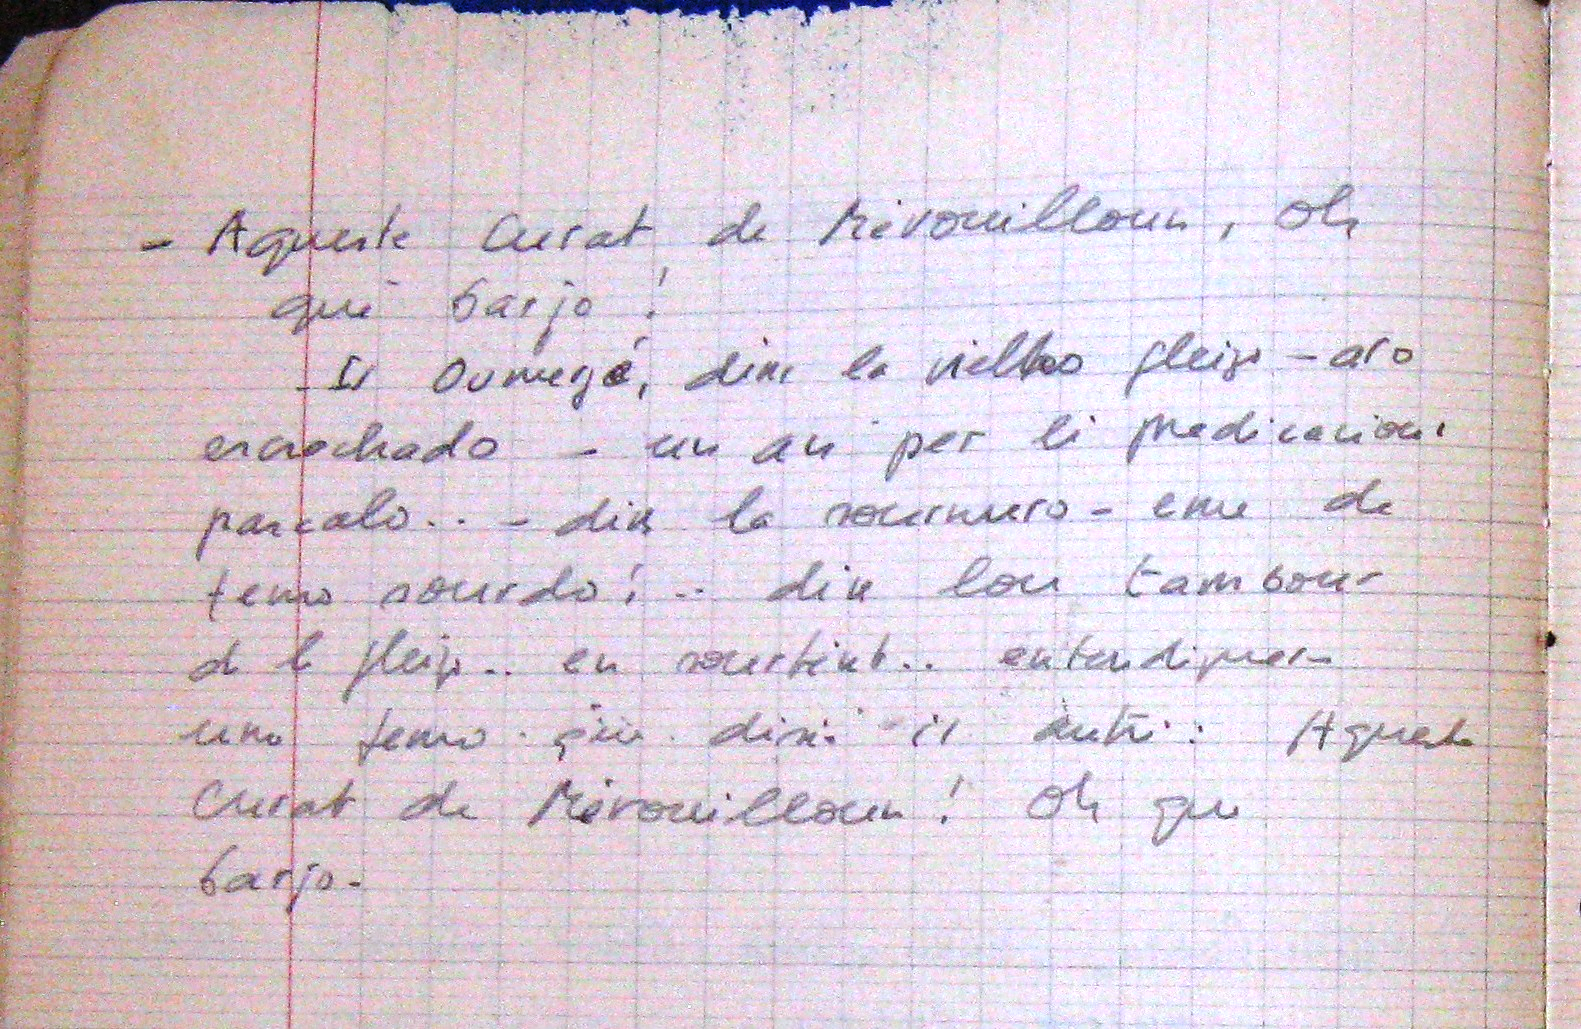 - Aqueste Curat de Mévouilloun, Oh
qué barjo !
- Is Oumergé, dins la vielho gleiso - aro
escrachado - un an per li predicacioun
pascalo.. - din la sournuro - eme de
femo sourdo ! .. din lou tambour
d l gleiso.. en sourtint.. entendiguere
uno femo que disié is autri : Aqueste
Curat de Mévouilloun ! Oh que
barjo.